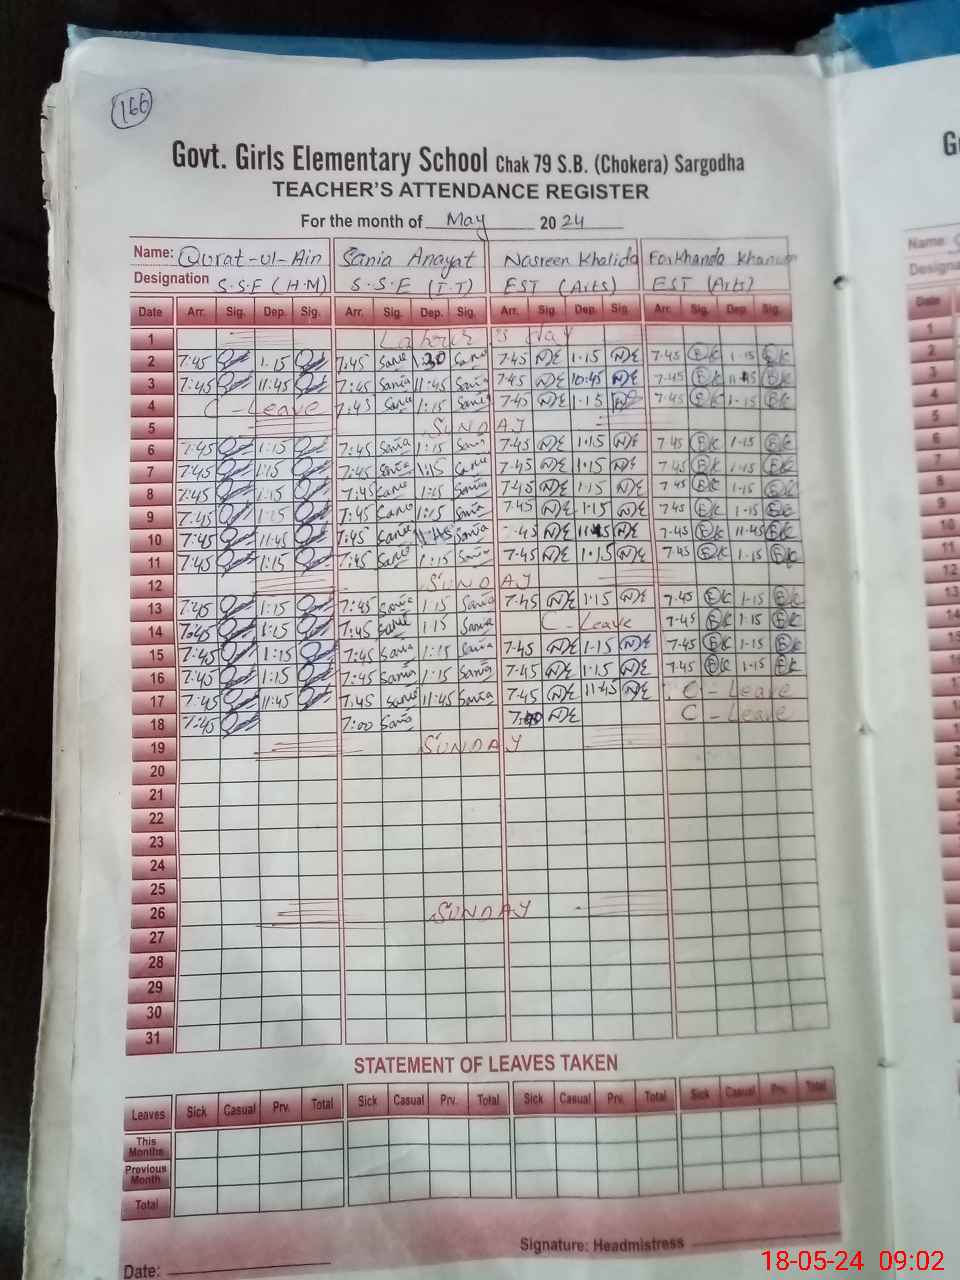 166
Govt. Girls Elementary School Chak 79 S.B. (Chokera) Sargodha
TEACHER'S ATTENDANCE REGISTER
For the month of May 2024
Name: Qurat-ul-Ain Sania Anayat Nasreen Khalida Farkhanda Khanum
Designation S.S.E (H.M) S.S.E (I.T) EST (Arts) EST (Arts)
Date Arr. Sig. Dep. Sig. Arr. Sig. Dep. Sig. Arr. Sig. Dep. Sig. Arr. Sig. Dep. Sig.
1 Labour's day
2 7:45 1:15 7:45 Sania 1:30 Sania 7-45 1-15 7-45 1-15
3 7:45 11:45 7:45 Sania 11:45 Sania 7-45 10:45 7-45 11-45
4 C-Leave 7:45 Sania 1:15 Sania 7-45 1-15 7-45 1-15
5 SUNDAY
6 7:45 1:15 7:45 Sania 1:15 Sania 7-45 1-15 7-45 1-15
7 7:45 1:15 7:45 Sania 1:15 Sania 7-45 1-15 7-45 1-15
8 7:45 1:15 7:45 Sania 1:15 Sania 7-45 1-15 7-45 1-15
9 7:45 1:15 7:45 Sania 1:15 Sania 7-45 1-15 7-45 1-15
10 7:45 11:45 7:45 Sania 11:45 Sania 7-45 7-45 11-45
11 7:45 1:15 7:45 Sania 1:15 Sania 7-45 1-15 7-45 1-15
12 SUNDAY
13 7:45 1:15 7:45 Sania 1:15 Sania 7-45 1-15 7-45 1-15
14 7:45 1:15 7:45 Sania 1:15 Sania C-Leave 7-45 1-15
15 7:45 1:15 7:45 Sania 1:15 Sania 7-45 1-15 7-45 1-15
16 7:45 1:15 7:45 Sania 1:15 Sania 7-45 1-15 7-45 1-15
17 7:45 11:45 7:45 Sania 11:45 Sania 7-45 11-45 C-Leave
18 7:45 7:00 Sania C-Leave
19 SUNDAY
20
21
22
23
24
25
26 SUNDAY
27
28
29
30
31
STATEMENT OF LEAVES TAKEN
Leaves Sick Casual Prv. Total Sick Casual Prv. Total Sick Casual Prv. Total Sick Casual Prv. Total
This Months
Previous Month
Total
Signature: Headmistress
Date:
18-05-24 09:02